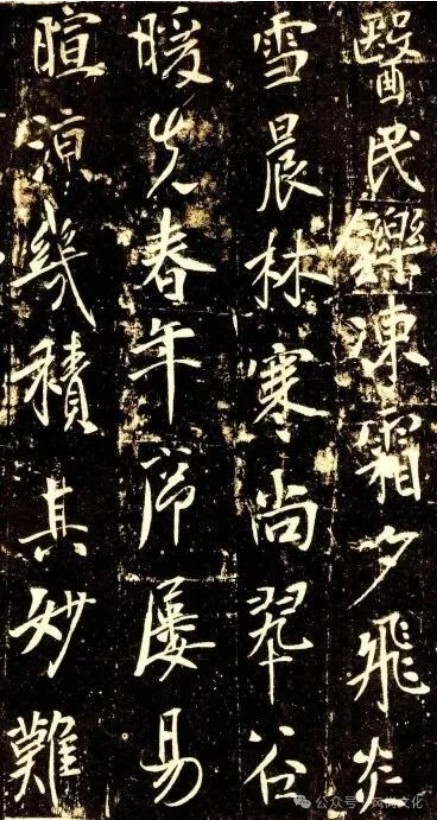 醫民鑠凍霜夕飛炎
雪晨林寒尚翠谷
暖先春年序屢易
暄涼幾積其妙難
公众号 文化